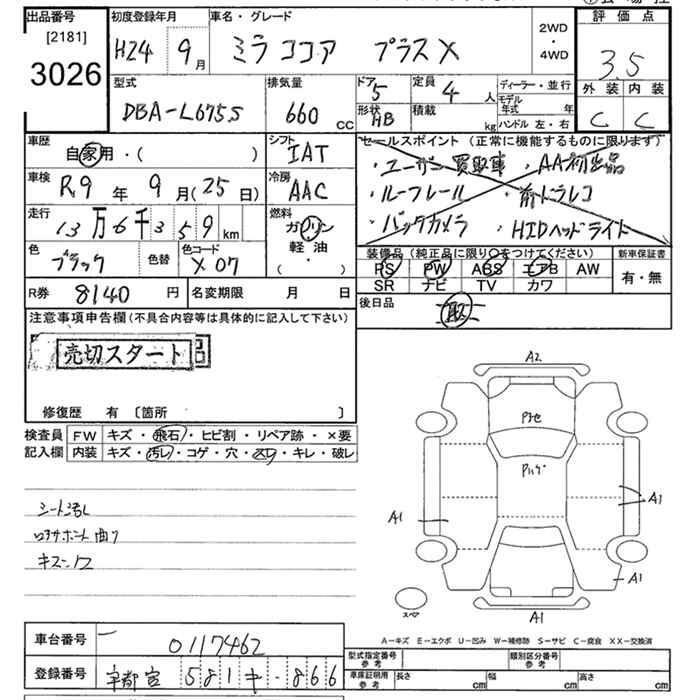 出品番号
[2181]
3026
初度登録年月
H24 9月
車名・グレード
ミラココア プラスX
2WD
・
4WD
評価点
3.5
外装 内装
C C
型式
DBA-L675S
排気量
660 CC
ドア
5
形状
HB
定員
4 人
積載
kg
ディーラー・並行
モデル年式 年
ハンドル 左・右
車歴
自家用・( )
シフト
IAT
車検
R9年 9月(25日)
冷房
AAC
走行
13万6千359km
燃料
ガソリン
軽油
( ・ )
色
ブラック
色替
色コード
X07
R券 8140円
名変期限 月 日
セールスポイント(正常に機能するものに限ります)
・ユーザー買取車 ・AA初出品
・ルーフレール ・前ドラレコ
・バックカメラ ・HIDヘッドライト
装備品(純正品に限り○をつけてください)
PS PW ABS エアB AW
SR ナビ TV カワ
新車保証書
有・無
後日品
取
注意事項申告欄(不具合内容等は具体的に記入して下さい)
売切スタート
修復歴 有 〔箇所 〕
検査員
記入欄
FW キズ・飛石・ヒビ割・リペア跡・×要
内装 キズ・汚レ・コゲ・穴・スレ・キレ・破レ
シート汚レ
ロアサポート曲り
A2
Pハゲ
A1
A1
A1
A1
スペア
A-キズ E-エクボ U-凹み W-補修跡 S-サビ C-腐食 XX-交換済
車台番号
0117462
登録番号
宇都宮 581 キ -866
型式指定番号
参考
類別区分番号
参考
車庫証明用
参考
長さ cm
幅 cm
高さ cm